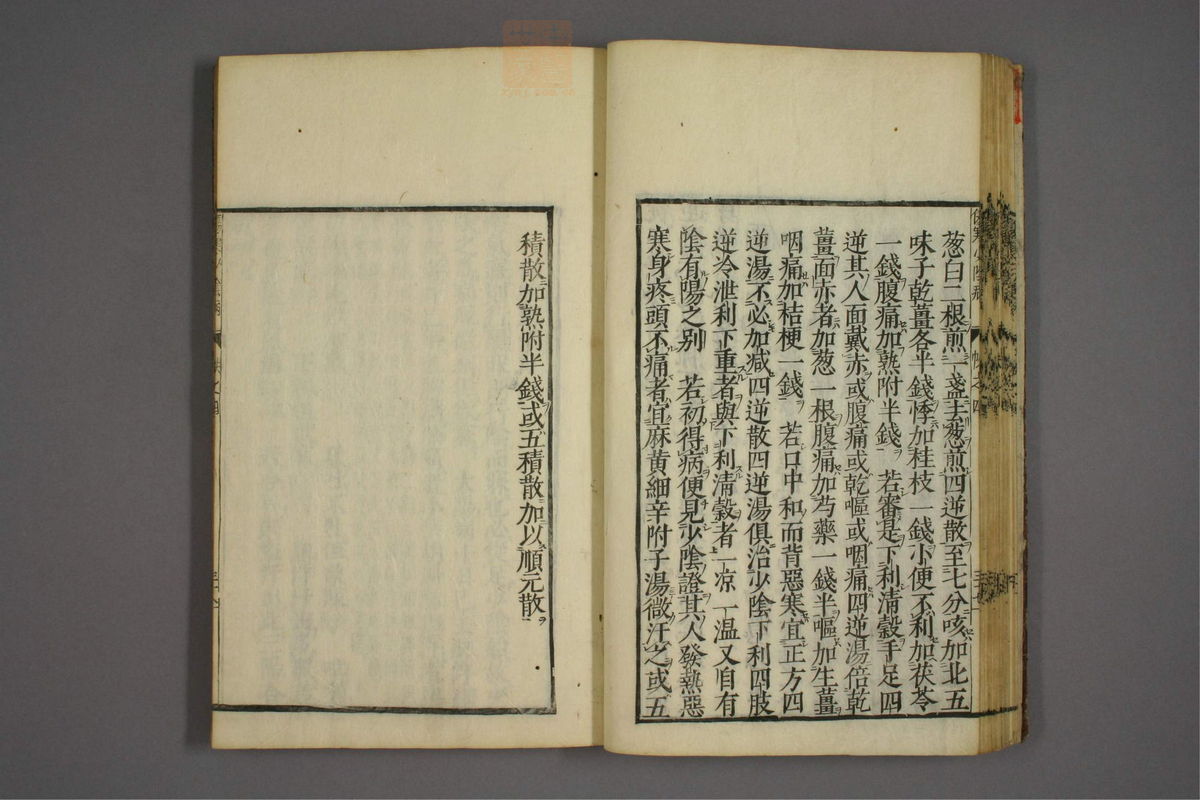 葱白二根煎一盞去葱煎四逆散至七分咳加北五
味子乾薑各半錢悸加桂枝一錢小便不利加茯苓
一錢腹痛加熟附半錢　若審是下利清穀手足四
逆其人面戴赤或腹痛或乾嘔或咽痛四逆湯倍乾
薑面赤者加葱一根腹痛加芍藥一錢半嘔加生薑
咽痛加桔梗一錢　若口中和而背惡寒宜正方四
逆湯不必加减四逆散四逆湯俱治少陰下利四肢
逆冷泄利下重者與下利清穀者一凉一温又自有
陰有陽之别　若初得病便見少陰證其人發熱惡
寒身疼頭不痛者宜麻黄細辛附子湯微汗之或五
積散加熟附半錢或五積散加以順元散